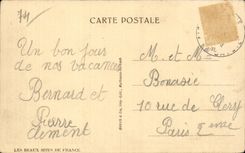 74
CARTE POSTALE
Un bon jour
de nos vacances
Bernard et
Pierre
clement
M. et M
Bonasie
10 rue de Clery
Paris 2eme
LES BEAUX SITES DE FRANCE.